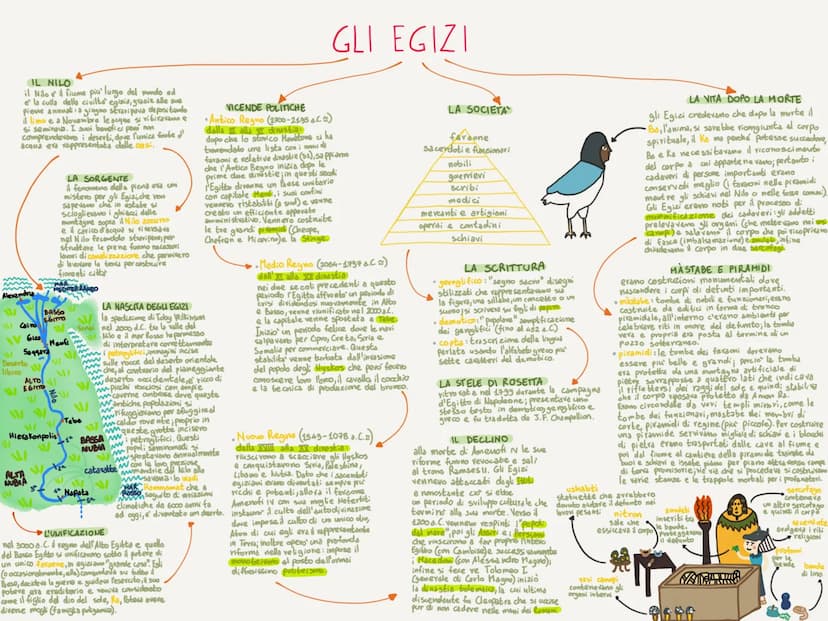 GLI EGIZI
IL NILO
il Nilo è il fiume più lungo del mondo ed
è la culla della civiltà egizia, grazie alle sue
piene annuali: a giugno straripava depositando
il limo e a Novembre le acque si ritiravano e
si seminava. I suoi benefici però non
comprendevano i deserti, dove l'unica fonte d'
acqua era rappresentata dalle oasi.
LA SORGENTE
il fenomeno della piena era un
mistero per gli Egizi, che non
sapevano che in estate si
scioglievano i ghiacci delle
montagne sopra il Nilo azzurro
e il carico d'acqua si riversava
nel Nilo facendolo straripare; per
sfruttare le piene furono necessari
lavori di canalizzazione che permisero
di lavorare la terra per costruire
fiorenti città
MAR
MEDITERRANEO
Alexandria
BASSO
EGITTO
Cairo
Giza
Menfi
Saqqara
Deserto
libico
Nilo
ALTO
EGITTO
Tebe
Hierakonpolis
BASSA
NUBIA
cateratte
ALTA
NUBIA
Napata
MAR
ROSSO
LA NASCITA DEGLI EGIZI
la spedizione di Toby Wilkinson
nel 2000 d.C. tra la valle del
Nilo e il mar Rosso ha permesso
di interpretare correttamente
i petroglifici, immagini incise
sulle rocce del deserto orientale
che, al contrario del pianeggiante
deserto occidentale, è ricco di
picchi rocciosi con ampie
caverne ombrose dove queste
antiche popolazioni si
rifugiavano per sfuggire al
caldo rovente (proprio in
queste grotte incisero
i petroglifici). Questi
popoli seminomadi si
spostavano annualmente
con la loro preziosa
mandria dal Nilo alla
savana: lo wadi
Hammamat che a
seguito di variazioni
climatiche da 6000 anni fa
ad oggi, è diventato un deserto.
L'UNIFICAZIONE
nel 3000 a.C. il regno dell'Alto Egitto e quello
del Basso Egitto si unificarono sotto il potere di
un unico faraone, in egiziano "grande casa". Egli
(o occasionalmente, ella) comandava su tutto il
Paese, decideva la guerra e guidava l'esercito, il suo
potere era ereditario e veniva considerato
come il figlio del dio del sole, Ra, poteva avere
diverse mogli (famiglia poligamica).
VICENDE POLITICHE
• Antico Regno (2700-2195 a.C.)
dalla III alla VI dinastia
dopo che lo storico Manetone ci ha
tramandato una lista con i nomi di
faraoni e relative dinastie (31), sappiamo
che l'Antico Regno inizia dopo le
prime due dinastie; in questi secoli
l'Egitto divenne un Paese unitario
con capitale Menfi, i suoi confini
vennero ristabiliti (a sud) e venne
creato un efficiente apparato
amministrativo. Vennero costruite
le tre grandi piramidi (Cheope,
Chefren e Micerino) e la Sfinge.
• Medio Regno
dall'XI alla XII dinastia
nei due secoli precedenti a questo
periodo l'Egitto affrontò un periodo di
crisi dividendosi nuovamente in Alto
e Basso, venne riunificato nel 2000 a.C.
e la capitale venne spostata a Tebe.
Iniziò un periodo felice dove le navi
salparono per Cipro, Creta, Siria e
Somalia per commerciare. Questa
stabilità venne turbata dall'invasione
del popolo degli Hyksos che però fecero
conoscere loro l'arco, il cavallo, il cocchio
e la tecnica di produzione del bronzo.
• Nuovo Regno
dalla XVIII alla XX dinastia
riuscirono a scacciare gli Hyksos
e conquistarono Siria, Palestina,
Libano e Nubia. Dato che i sacerdoti
egiziani erano diventati sempre più
ricchi e potenti, allora il faraone
Amenofi IV con sua moglie Nefertiti
instaurò il culto dell'autodivinazione
dove impose il culto di un unico dio
Aton di cui egli era il rappresentante
in Terra, inoltre operò una profonda
riforma nella religione: impose il
monoteismo al posto dell'ormai
diffusissimo politeismo.
LA SOCIETÀ
faraone
sacerdoti e funzionari
nobili
guerrieri
scribi
medici
mercanti e artigiani
operai e contadini
schiavi
LA SCRITTURA
• geroglifico: "segno sacro" disegni
stilizzati che rappresentavano una
figura, una sillaba, un concetto o un
suono; si scriveva su fogli di papiro
• demotico: "popolare" semplificazione
dei geroglifici
• copto: trascrizione della lingua
parlata usando l'alfabeto greco più
sette caratteri del demotico.
LA STELE DI ROSETTA
ritrovata nel 1799 durante la campagna
d'Egitto di Napoleone; presentava uno
stesso testo in demotico, geroglifico e
greco e fu tradotta da J.F. Champollion.
IL DECLINO
alla morte di Amenofi IV le sue
riforme furono revocate e salì
al trono Ramses II. Gli Egizi
vennero attaccati dagli Ittiti
e nonostante ciò si ebbe
un periodo di sviluppo culturale che
terminò alla sua morte. Verso il
1200 a.C. vennero respinti i "popoli
del mare", poi gli Assiri e i Persiani
che riuscirono a far proprio l'intero
Egitto (con Cambise), successivamente
i Macedoni (con Alessandro Magno);
infine si fece re Tolomeo I
(generale di Carlo Magno) iniziò
la dinastia tolemaica, la cui ultima
discendente fu Cleopatra che si uccise
pur di non cadere nelle mani dei Romani.
LA VITA DOPO LA MORTE
gli Egizi credevano che dopo la morte il
Ba, l'anima, si sarebbe ricongiunta al corpo
spirituale, il Ka ma perché potesse succedere,
Ba e Ka necessitavano il riconoscimento
del corpo a cui appartenevano; pertanto i
cadaveri di persone importanti erano
conservati meglio (i faraoni nelle piramidi
mentre gli schiavi nel Nilo o nelle fosse comuni).
Gli Egizi erano noti per il processo di
mummificazione dei cadaveri: gli addetti
prelevavano gli organi (che mettevano nei vasi
canopi) e salavano il corpo che poi ricoprivano
di fasce (imbalsamazione) e amuleti, infine
chiudevano il corpo in due sarcofagi.
MÀSTABE E PIRAMIDI
erano costruzioni monumentali dove
nascondere i corpi di defunti importanti.
• màstabe: tombe di nobili e funzionari, erano
costruite da edifici in forma di tronco
piramidale, all'interno c'erano ambienti per
celebrare riti in onore del defunto; la tomba
vera e propria era posta al termine di un
pozzo sotterraneo.
• piramidi: le tombe dei faraoni dovevano
essere più belle e grandi, perciò la tomba
era protetta da una montagna artificiale di
pietre sovrapposte a quattro lati che indicava
il riflettersi dei raggi del sole e quindi stabiliva
che il corpo riposava protetto da Amon Ra.
Erano circondate da vari templi minori, come le
tombe dei funzionari, mastabe dei membri di
corte, piramidi di regine (più piccole). Per costruire
una piramide servivano migliaia di schiavi e i blocchi
di pietra erano trasportati dalle cave al fiume e
poi dal fiume al cantiere della piramide trainate da
buoi e schiavi e issate piano per piano attraverso rampe
di terra provvisorie, via via che si procedeva si costruivano
le varie stanze e le trappole mortali per i profanatori.
ushabti
statuette che avrebbero
dovuto aiutare il defunto nei
lavori pesanti
nitron
sale che
essiccava il corpo
amuleti
inseriti tra
le bende,
proteggevano
il defunto
sarcofago
contenente
un altro sarcofago
e quindi il corpo
sacerdote
svolgeva i riti
religiosi
profumi
per le
bende
bende
di lino
vasi canopi
contenevano gli
organi interni